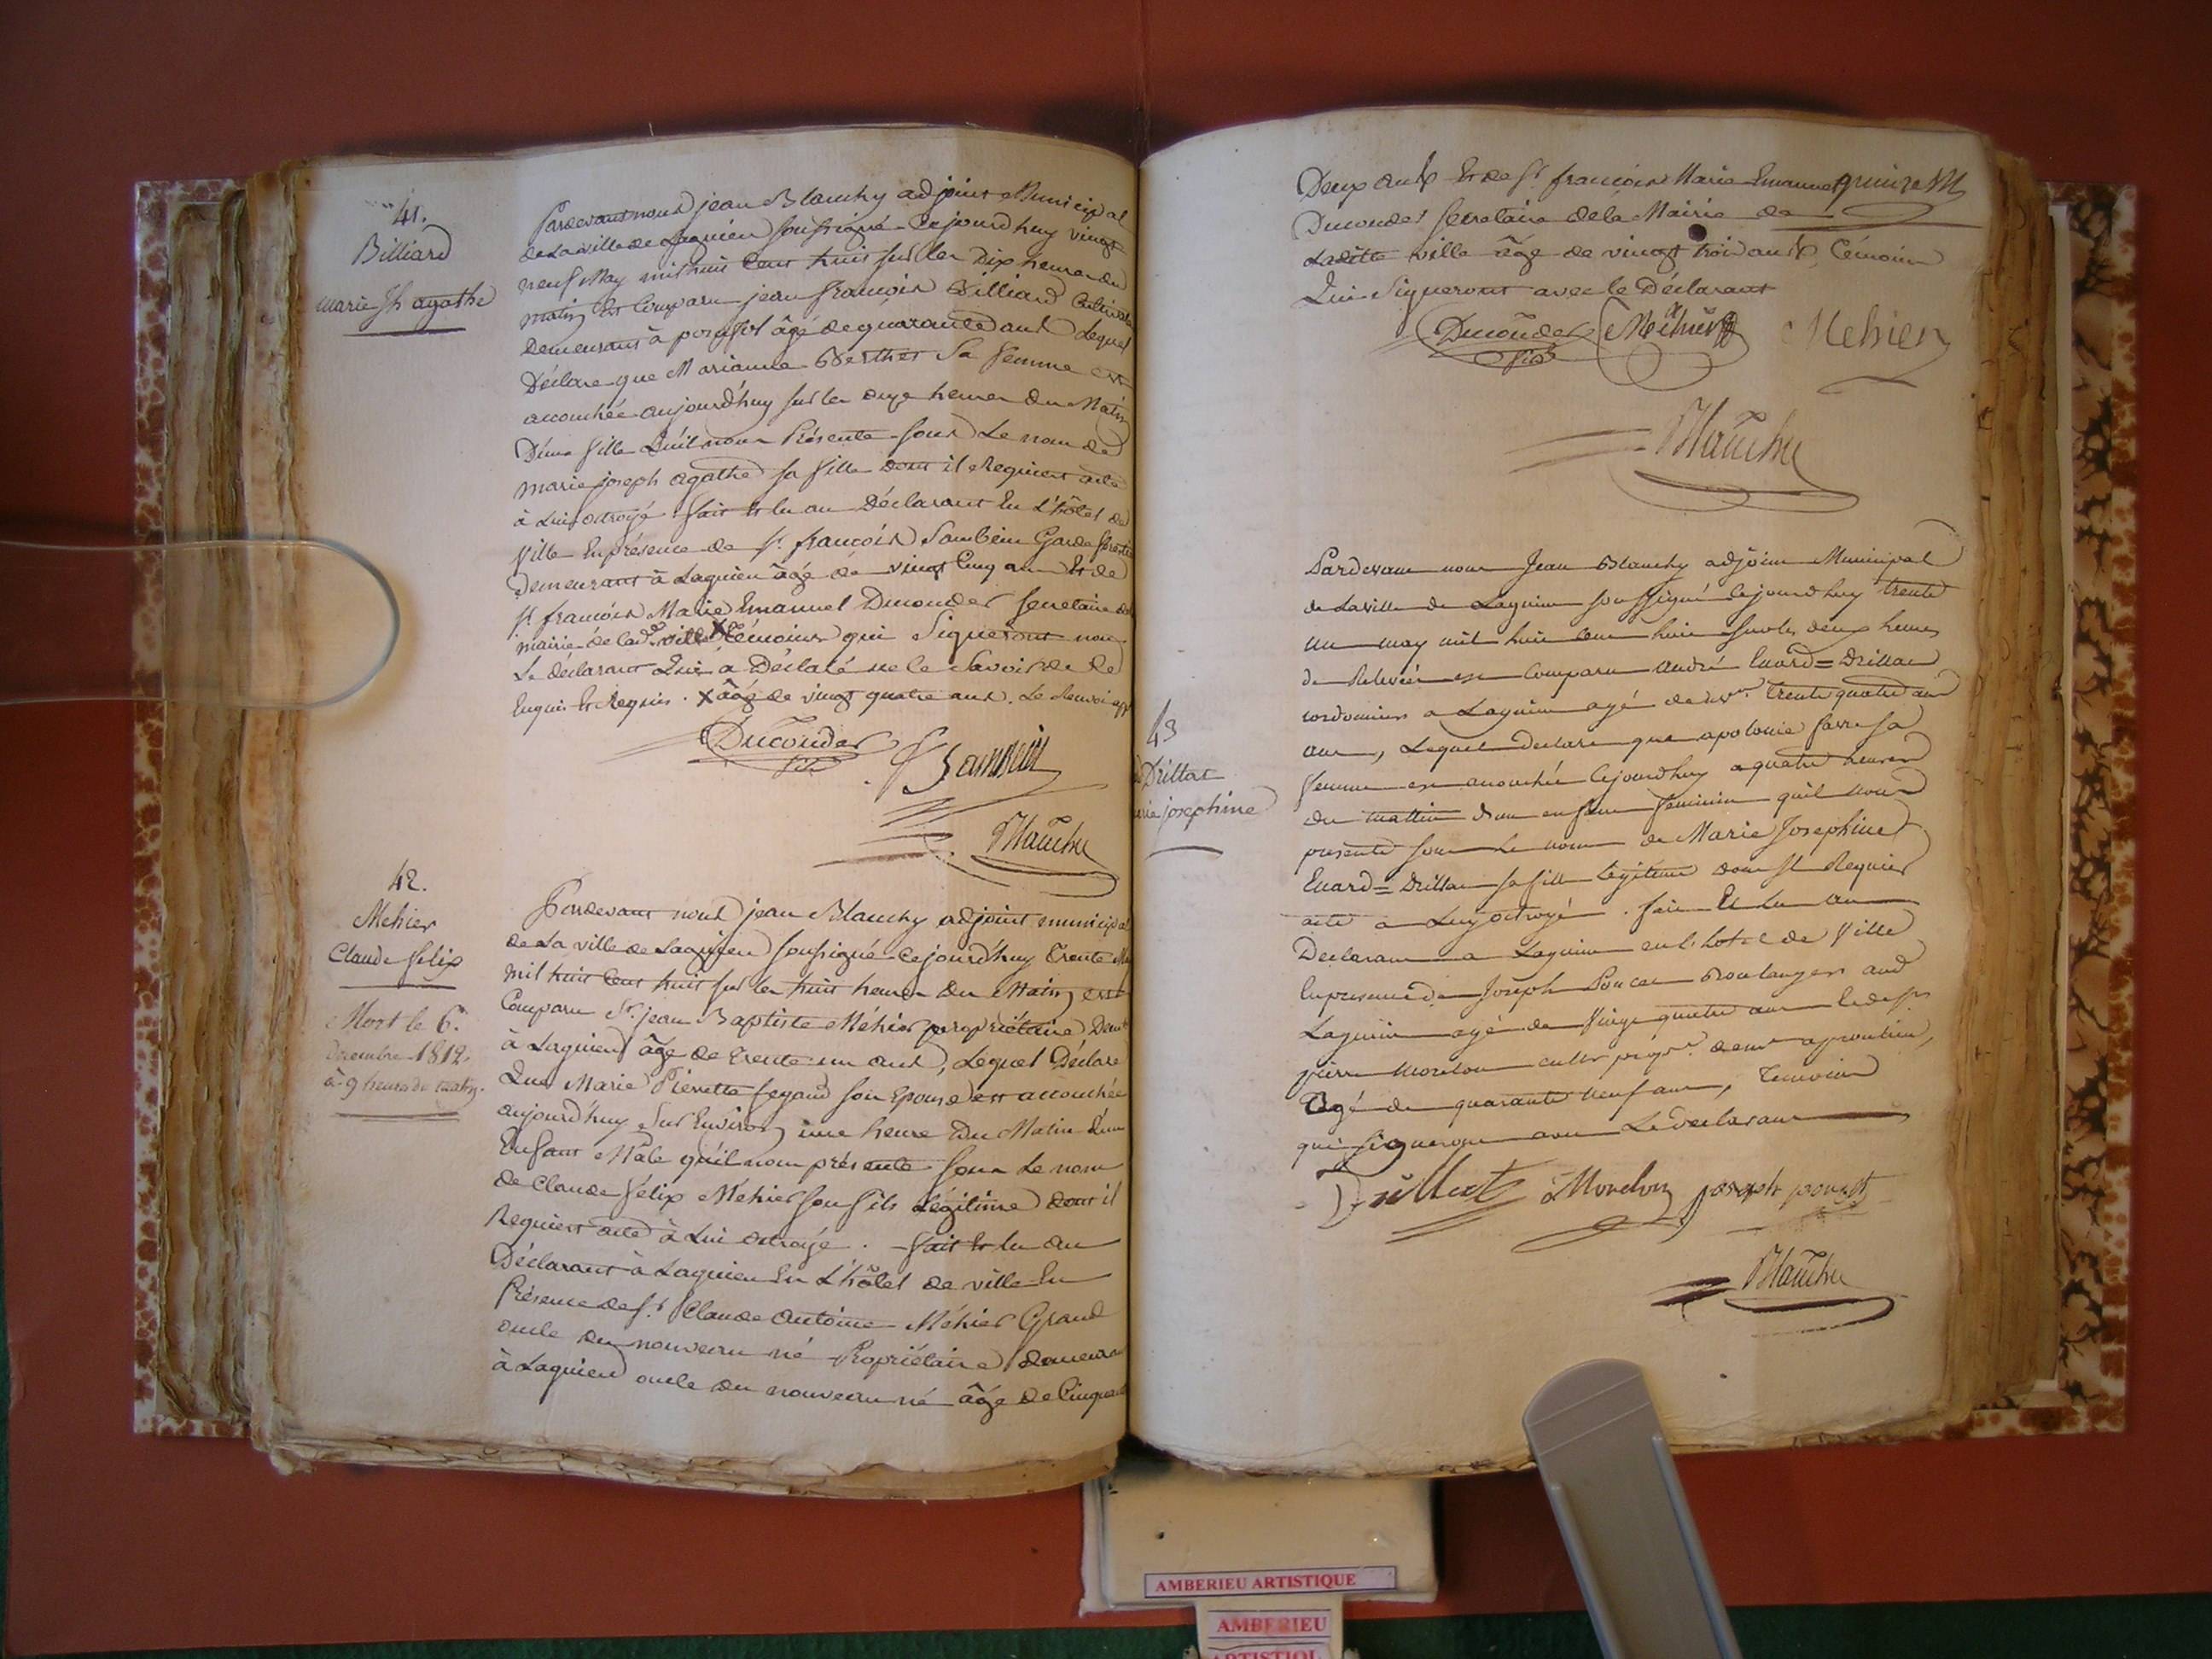 41.
Billiard
marie Jh agathe
Pardevant nous jean Blanchy adjoint Municipal
de La ville de Lagnieu soussigné Cejourd'huy vingt
neuf May mil huit Cent huit sur les Dix heures du
matin Est Comparu jean francois Billiard Cultivateur
Demeurant à posafol âgé de quarante ans Lequel
Déclare que Marianne Berthet Sa femme est
accouchée aujourd'huy sur les onze heures du Matin
D'une fille Qu'il nous Présente sous Le nom de
marie joseph agathe sa fille dont il Requiert acte
à Lui octroyé. fait et lu au Déclarant En L'hôtel de
ville En présence de Sr. francois Sambein Garde forestier
Demeurant à Lagnieu âgé de vingt Cinq ans Et de
Sr. francois Marie Emanuel Ducondes Secretaire de la
mairie de lade. ville X Témoins qui Signeront non
Le déclarant Qui a Déclaré ne le Savoir de ce
Enquis Et Requis. X âgé de vingt quatre ans. Le Renvoi app
Ducondes
fils
Sambein
Blanchy
42.
Mehier
Claude felix
Mort le 6.
décembre 1812.
à 9 heures du matin.
Pardevant nous jean Blanchy adjoint municipal
de La ville de Lagnieu soussigné Cejourd'huy Trente May
mil huit Cent huit sur les huit heures Du Matin est
Comparu Sr. jean Baptiste Méhier propriétaire Demt
à Lagnieu âgé de Trente un ans, Lequel Déclare
Que Marie Pierrette feyaud son Epouse est accouchée
aujourd'huy Sur Environ une heure Du Matin d'un
Enfant Male qu'il nous présente sous Le nom
de Claude félix Méhier son fils Légitime dont il
Requiert acte à Lui octroyé. fait Et lu au
Déclarant à Lagnieu En L'hôtel de ville En
Présence de Sr. Claude Antoine Méhier Grand
oncle du nouveau né Propriétaire demeurant
à Lagnieu oncle du nouveau né âgé de Cinquante
Deux ans Et de Sr. francois Marie Emanuel
Ducondes Secretaire de la Mairie de
Ladite ville âgé de vingt trois ans Témoins
Qui Signeront avec le Déclarant
Ducondes
fils
Méhier
Mehier
Blanchy
43
Drillat
marie josephine
Pardevant nous Jean Blanchy adjoint Municipal
de La ville de Lagnieu soussigné Cejourd'huy trente
un may mil huit cent huit sur les deux heures
de Relevée est Comparu André Euard = Drillat
cordonnier a Lagnieu agé de Trente quatre ans
Lequel declare que apolonie farre sa
femme est accouchée Cejourd'huy a quatre heures
du mattin d'un enfant feminin qu'il nous
presente sous Le nom de Marie Josephine
Euard = Drillat sa fille Légitime dont il Requiert
acte a Luy octroyé. fait Et Lu au
Declarant a Lagnieu en l'hotel de Ville
En presence de Joseph Poncet Boulanger aud
Lagnieu agé de Vingt quatre ans
pierre Mordon demt a proulieu,
agé de quarante neuf ans, Temoins
qui signeront avec Le declarant
Drillat Mordon joseph poncet
Blanchy
AMBERIEU ARTISTIQUE
AMBERIEU
ARTISTIQUE